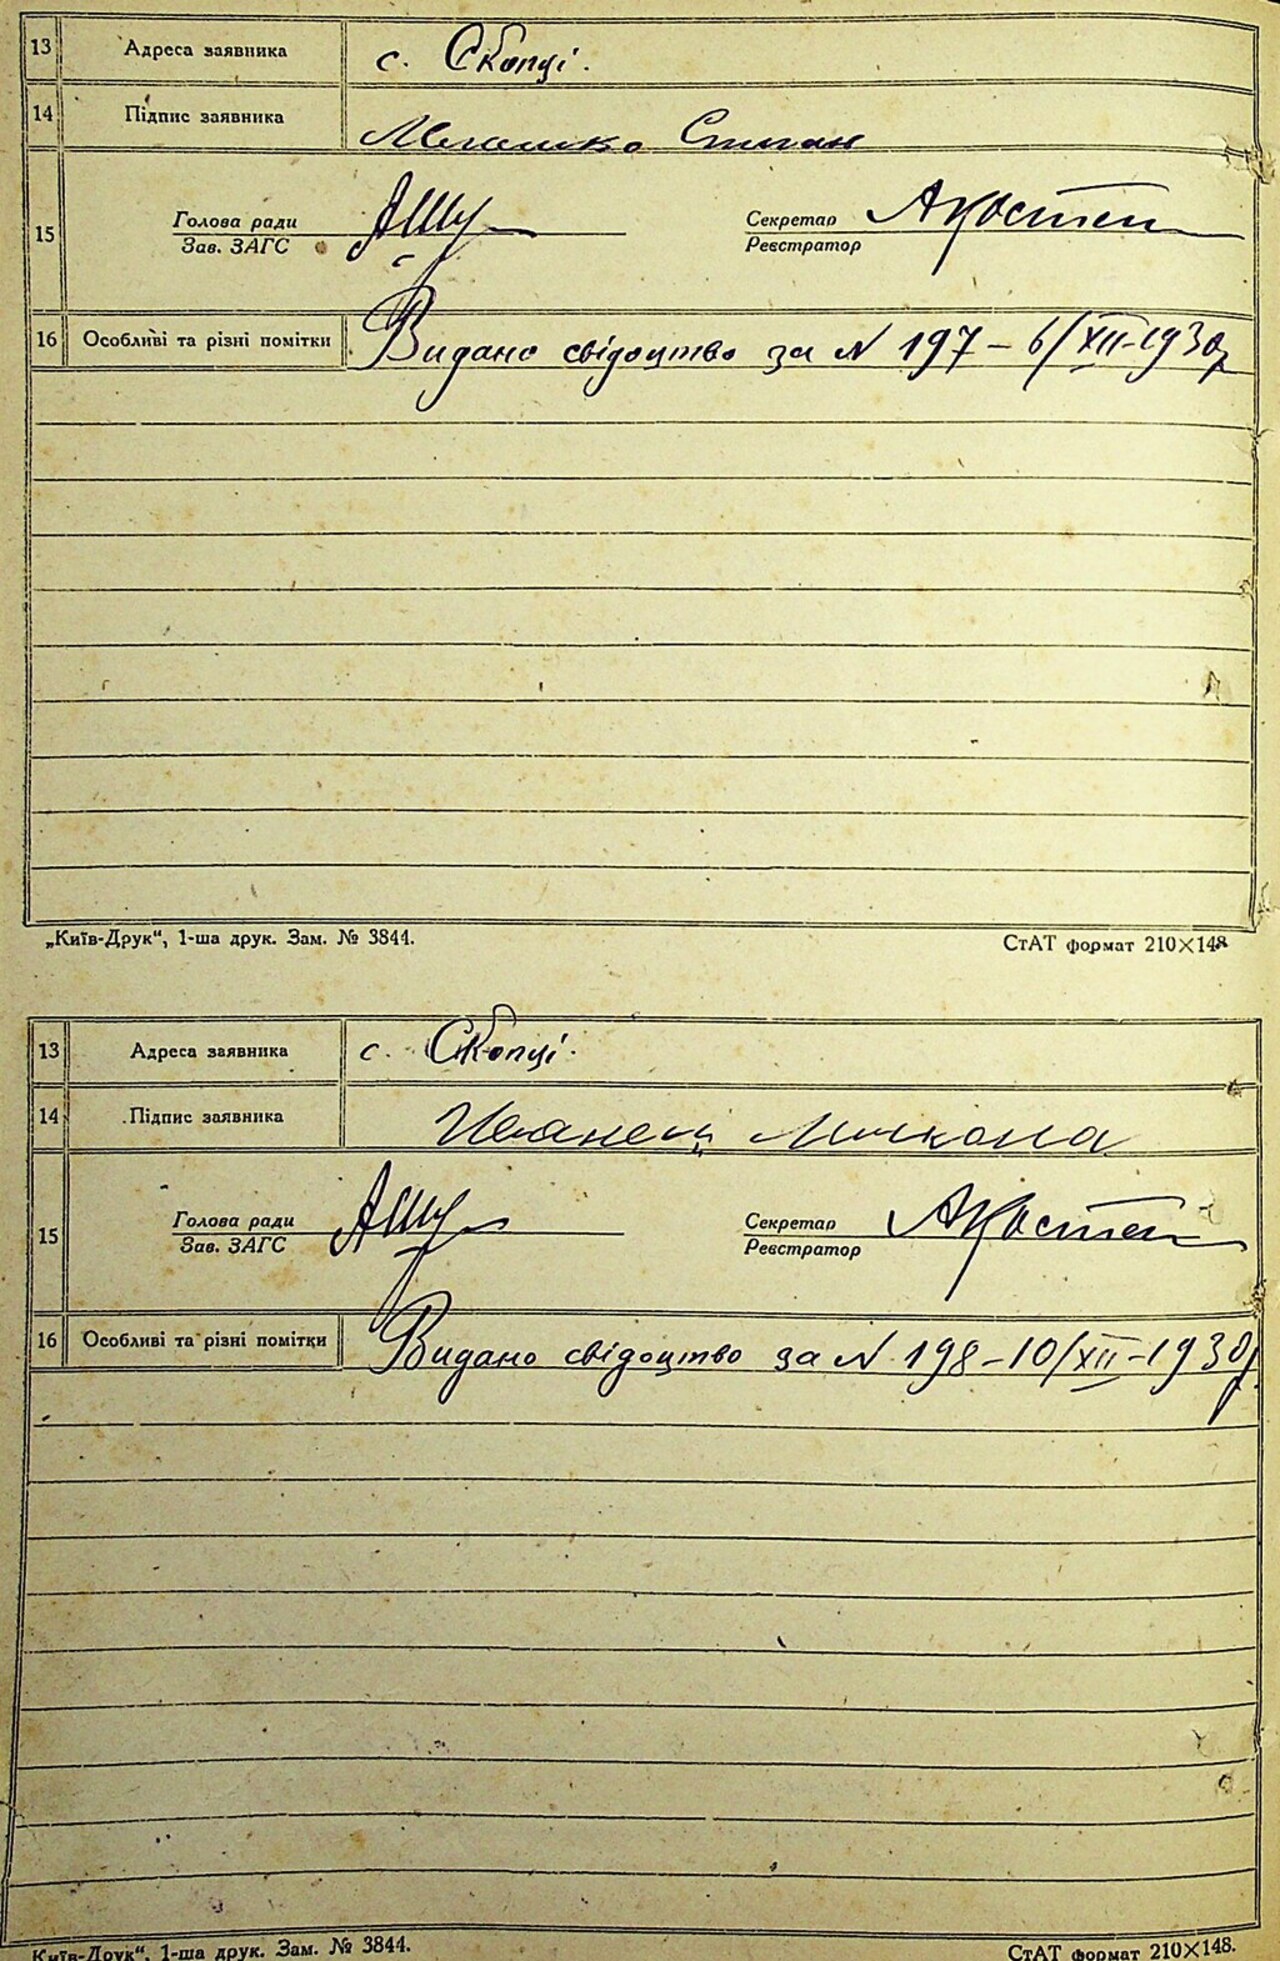 13 Адреса заявника с. Скопці.
14 Підпис заявника Степан
15 Голова ради Секретар АКостен
Зав. ЗАГС Реєстратор
16 Особливі та різні помітки Видано свідоцтво за N 197 – 6/XII-1930р
„Київ-Друк“, 1-ша друк. Зам. № 3844. СтАТ формат 210×148
13 Адреса заявника с. Скопці.
14 Підпис заявника Иванец
15 Голова ради Секретар АКостен
Зав. ЗАГС Реєстратор
16 Особливі та різні помітки Видано свідоцтво за N 198 – 10/XII-1930р
Київ-Друк“, 1-ша друк. Зам. № 3844. СтАТ формат 210×148.